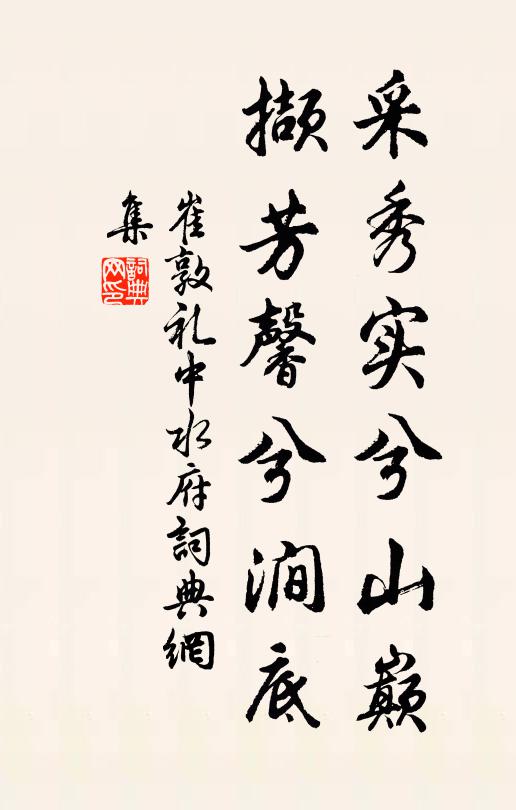 采秀实兮山巅
撷芳馨兮涧底
崔敦礼中水府詞典網
集
詞典网印